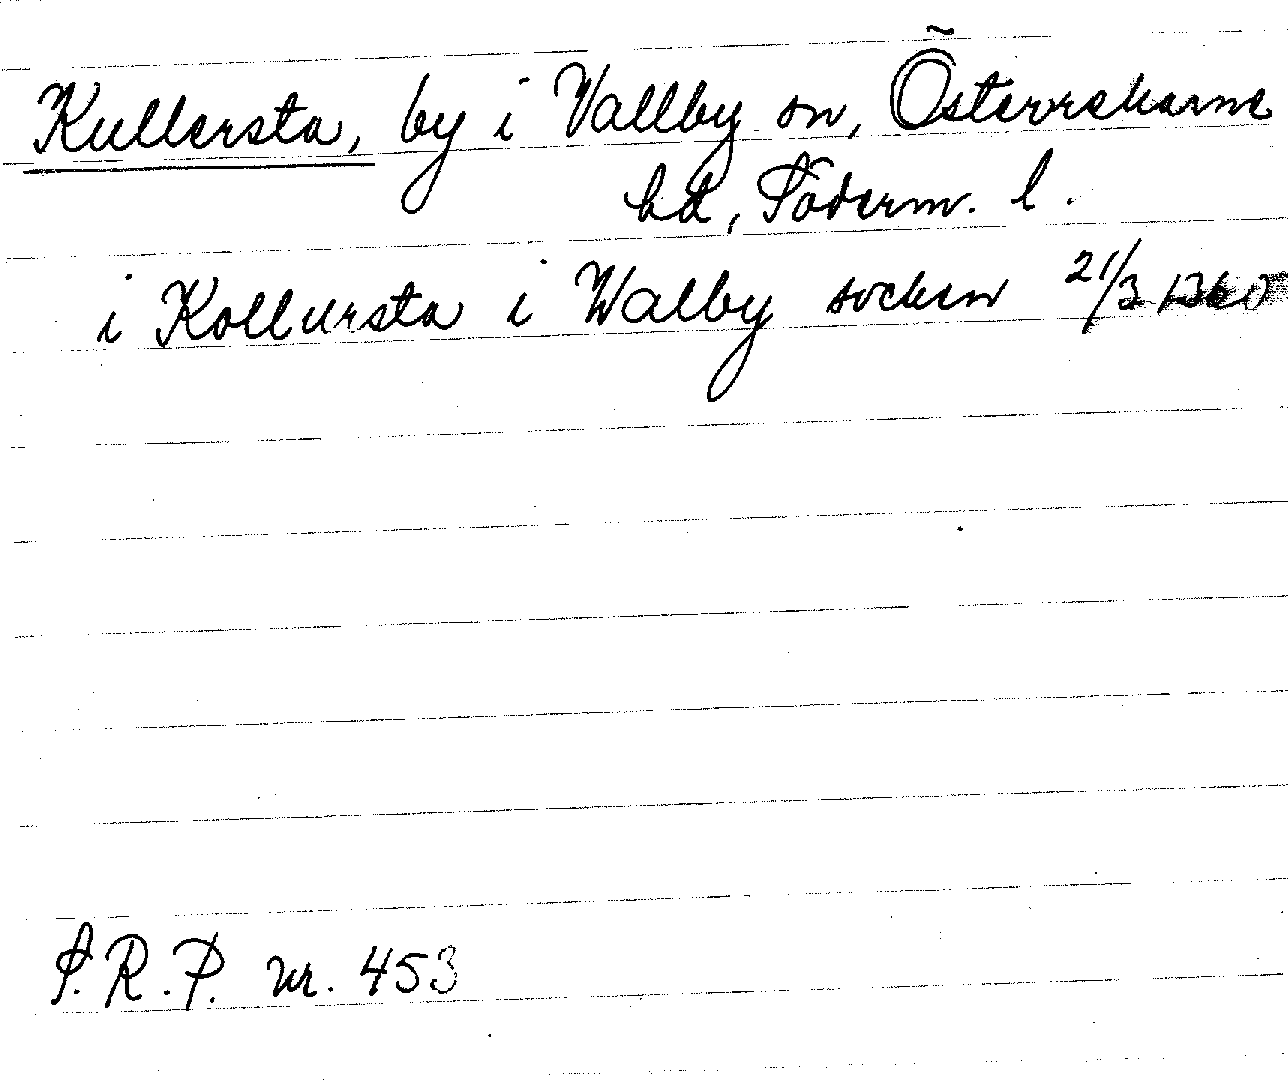 Kullersta, by i Vallby sn, Österrekarne
hd, Söderm. l.
i Kollersta i Walby socken 21/3 1360
S.R.P. nr. 453